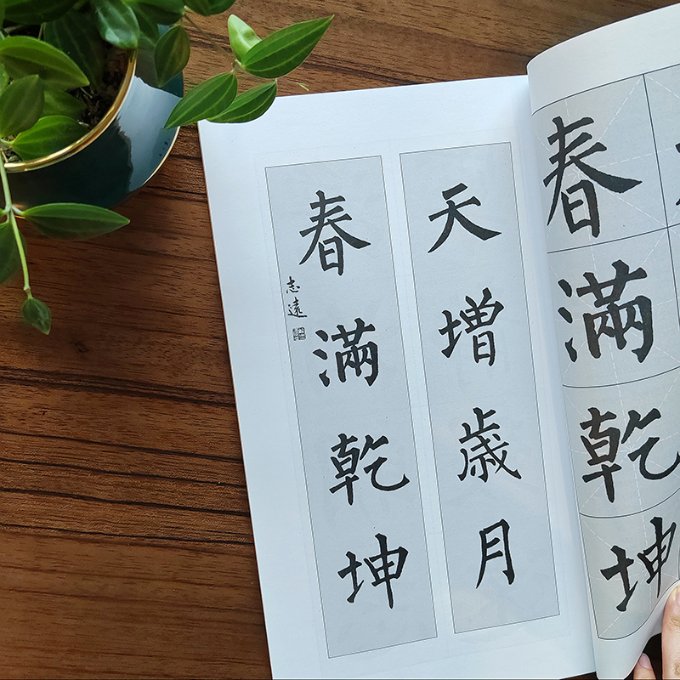 天增歲月
春滿乾坤
志遠
春滿乾坤